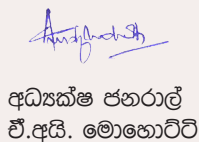 අධ්‍යක්ෂ ජනරාල්
ඒ.අයි. මොහොට්ටි